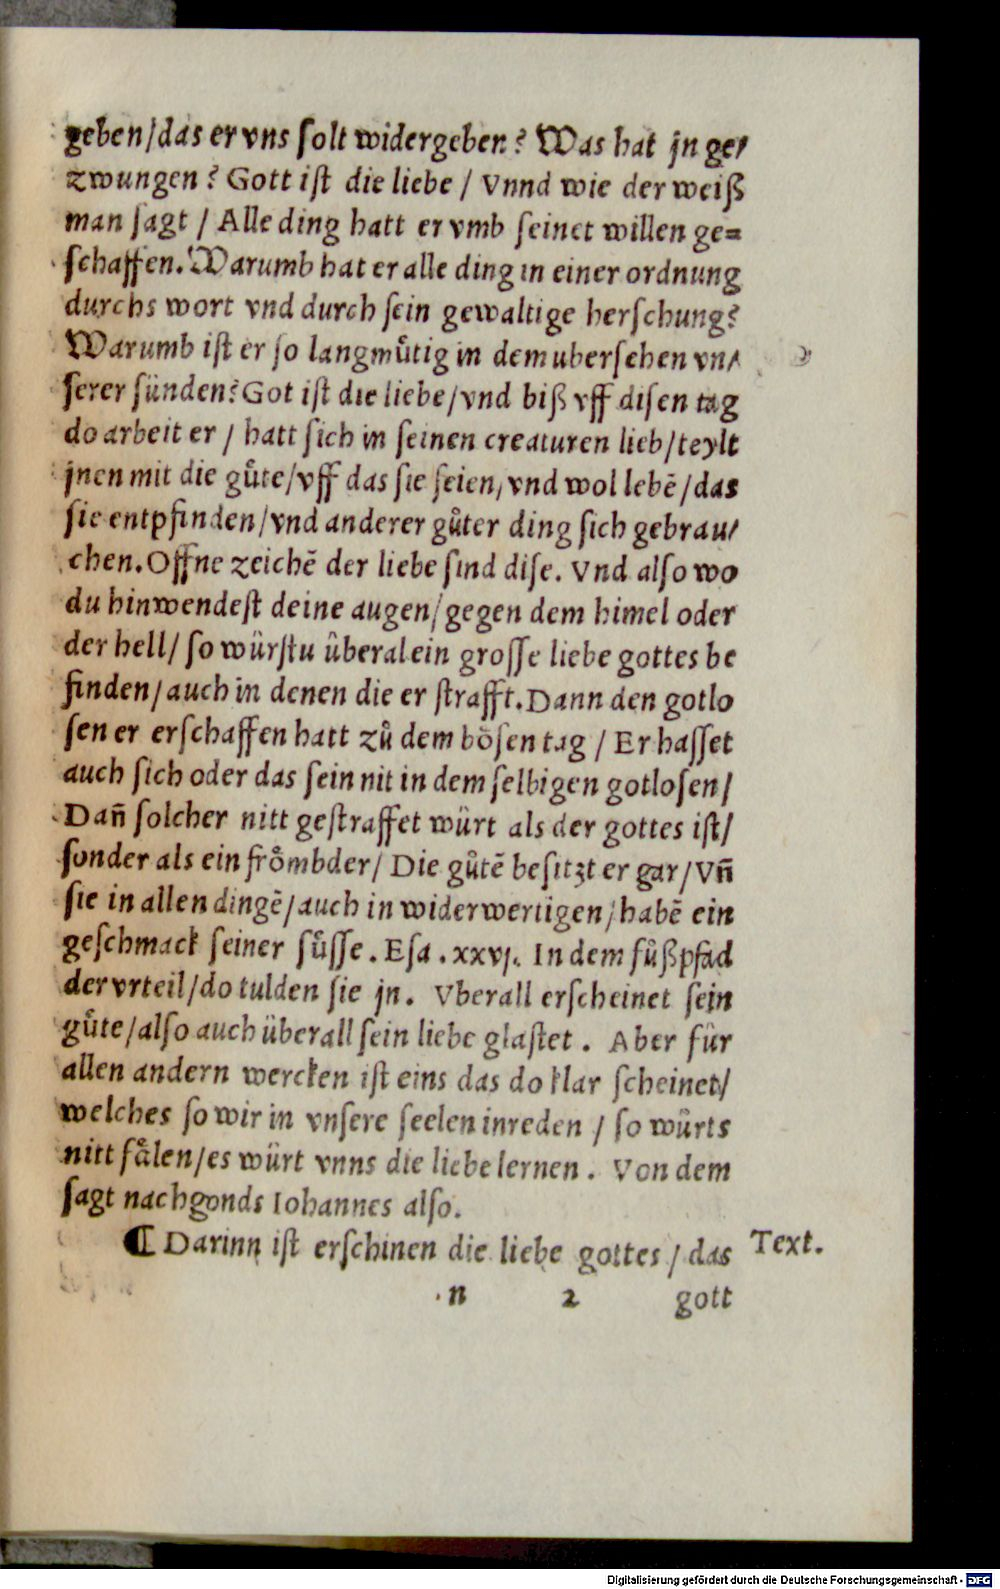 geben/das er vns ſolt widergeben? Was hat jn ge/
zwungen? Gott iſt die liebe / Vnnd wie der weiß
man ſagt / Alle ding hatt er vmb ſeinet willen ge=
ſchaffen. Warumb hat er alle ding in einer ordnung
durchs wort vnd durch ſein gewaltige herſchung?
Warumb iſt er ſo langmuͤtig in dem uberſehen vn/
ſerer ſünden? Got iſt die liebe/vnd biß vff diſen tag
do arbeit er / hatt ſich in ſeinen creaturen lieb/teylt
jnen mit die guͤte/vff das ſie ſeien/vnd wol lebē/das
ſie entpfinden/vnd anderer guͤter ding ſich gebrau/
chen. Offne zeichē der liebe ſind diſe. Vnd alſo wo
du hinwendeſt deine augen/gegen dem himel oder
der hell/ ſo würſtu überal ein groſſe liebe gottes be
finden/auch in denen die er ſtrafft. Dann den gotlo
ſen er erſchaffen hatt zů dem boͤſen tag / Er haſſet
auch ſich oder das ſein nit in dem ſelbigen gotloſen/
Dañ ſolcher nitt geſtraffet würt als der gottes iſt/
ſonder als ein froͤmbder/ Die guͤtē beſitzt er gar/Vñ
ſie in allen dingē/auch in widerwertigen/habē ein
geſchmack ſeiner ſuͤſſe. Eſa. xxvj. In dem fůßpfad
der vrteil/do tulden ſie jn. Vberall erſcheinet ſein
guͤte/alſo auch überall ſein liebe glaſtet. Aber für
allen andern wercken iſt eins das do klar ſcheinet/
welches ſo wir in vnſere ſeelen inreden / ſo würts
nitt faͤlen/es würt vnns die liebe lernen. Von dem
ſagt nachgonds Iohannes alſo.
¶ Darinn iſt erſchinen die liebe gottes / das
Text.
n 2 gott
Digitalisierung gefördert durch die Deutsche Forschungsgemeinschaft - DFG